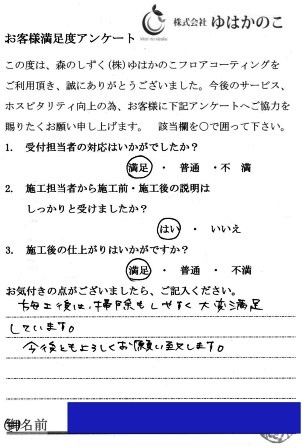 株式会社 ゆはかのこ
お客様満足度アンケート
この度は、森のしずく(株)ゆはかのこフロアコーティングを
ご利用頂き、誠にありがとうございました。今後のサービス、
ホスピタリティ向上の為、お客様に下記アンケートへご協力を
賜りたくお願い申し上げます。 該当欄を○で囲って下さい。
1. 受付担当者の対応はいかがでしたか？
満足 ・ 普通 ・不 満
2. 施工担当者から施工前・施工後の説明は
しっかりと受けましたか？
はい ・ いいえ
3. 施工後の仕上がりはいかがですか？
満足 ・ 普通 ・ 不満
お気付きの点がございましたら、ご記入ください。
施工後は、掃除もしやすく大変満足
しています。
今後ともよろしくお願い致します。
御名前